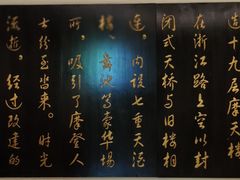 造十九层摩天
在浙江路上空以封
闭式天桥与旧楼相
连。内设七重天酒
楼、舞池等豪华场
所，吸引了摩登人
士纷至沓来。时光
流逝。经过改建的